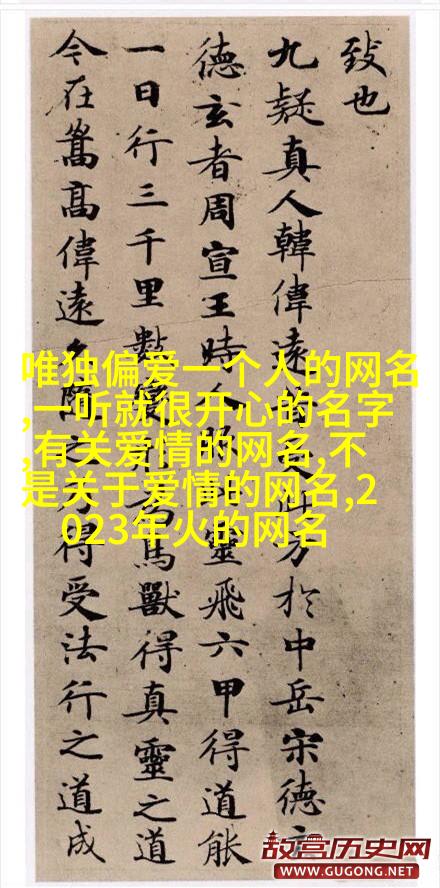 致也
九疑真人韓偉遠方於中岳宋德
德玄者周宣王時人靈飛六甲得道能
一日行三千里數變鳥獸得真靈之道
今在嵩高偉遠隨之得受法行之道成
唯独偏爱一个人的网名
,一听就很开心的名字
,有关爱情的网名,不
是关于爱情的网名,2
023年火的网名
故宫历史网
WWW.GUGONG.NET